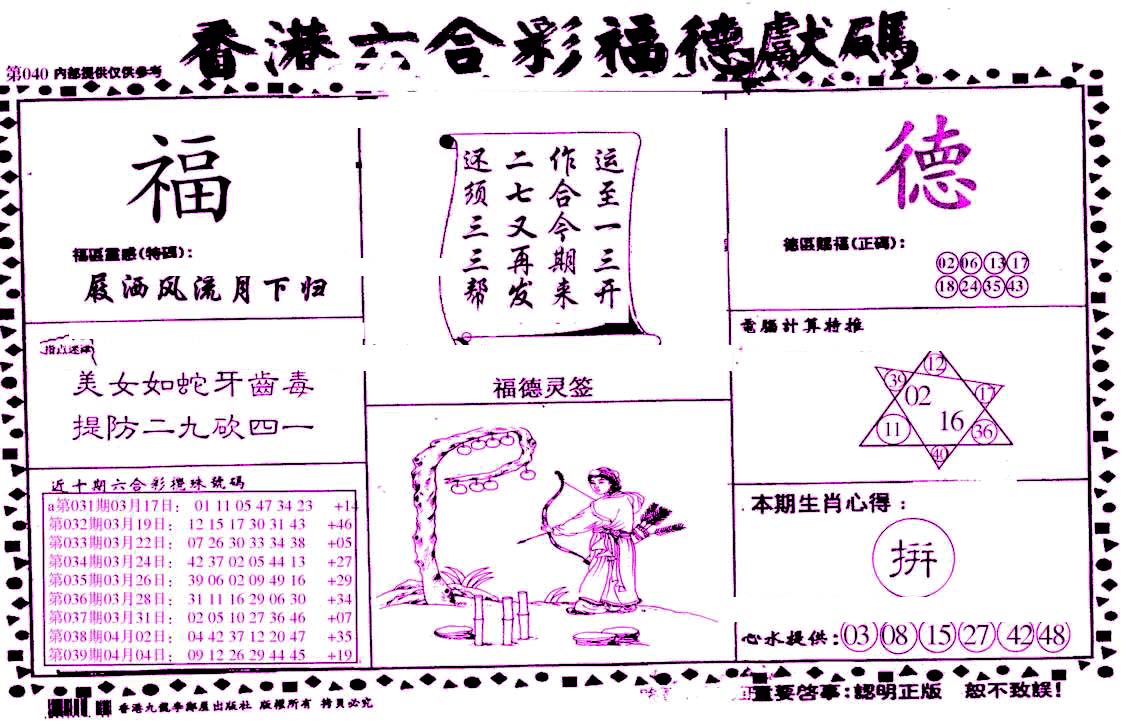 香港六合彩福德獻碼
第040 内部提供仅供参考
福
福區靈感(特碼):
屐洒风流月下归
美女如蛇牙齒毒
提防二九砍四一
近十期六合彩攪珠號碼
a第031期03月17日: 01 11 05 47 34 23 +14
第032期03月19日: 12 15 17 30 31 43 +46
第033期03月22日: 07 26 30 33 34 38 +05
第034期03月24日: 42 37 02 05 44 13 +27
第035期03月26日: 39 06 02 09 49 16 +29
第036期03月28日: 31 11 16 29 06 30 +34
第037期03月31日: 02 05 10 27 36 46 +07
第038期04月02日: 04 42 37 12 20 47 +35
第039期04月04日: 09 12 26 29 44 45 +19
运至一三开
作合今期来
二七又再发
还须三三帮
福德灵签
德
德區賜福(正碼):
02 06 13 17
18 24 35 43
電腦計算特推
12
39 02 17
11 16 36
40
本期生肖心得:
拼
心水提供: 03 08 15 27 42 48
重要啓事:認明正版 恕不致誤!
香港九龍李鄭屋出版社 版權所有 拷貝必究